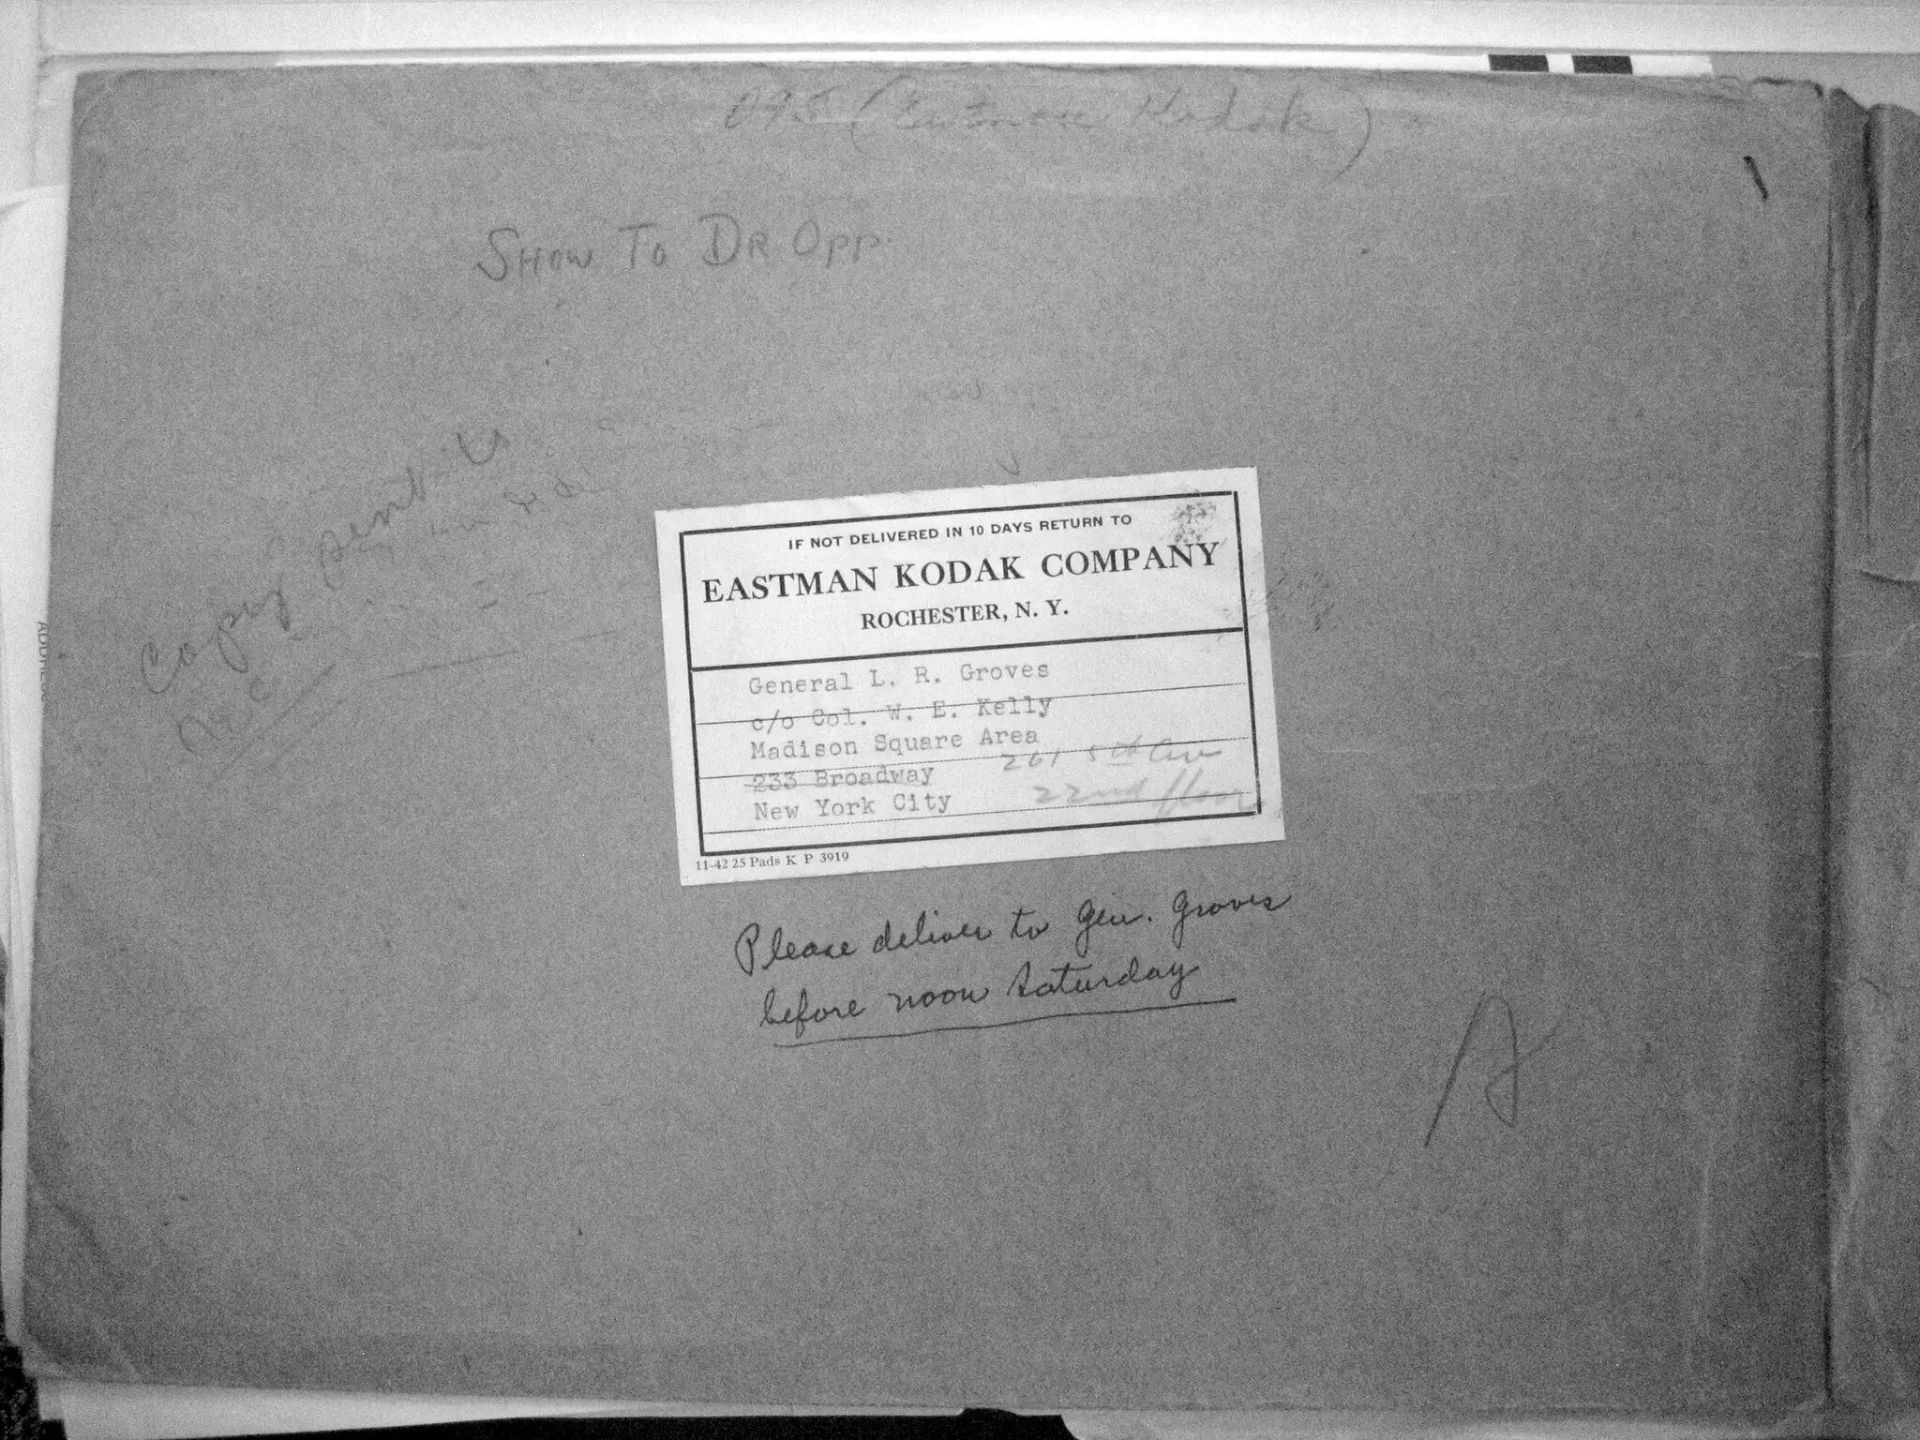 095 (Eastman Kodak)
SHOW TO DR OPP.
Copy sent to
IF NOT DELIVERED IN 10 DAYS RETURN TO
EASTMAN KODAK COMPANY
ROCHESTER, N. Y.
General L. R. Groves
c/o Col. W. E. Kelly
Madison Square Area
233 Broadway 261 5th Ave
New York City 22nd floor
11-42 25 Pads K P 3919
Please deliver to Gen. Groves
before noon Saturday